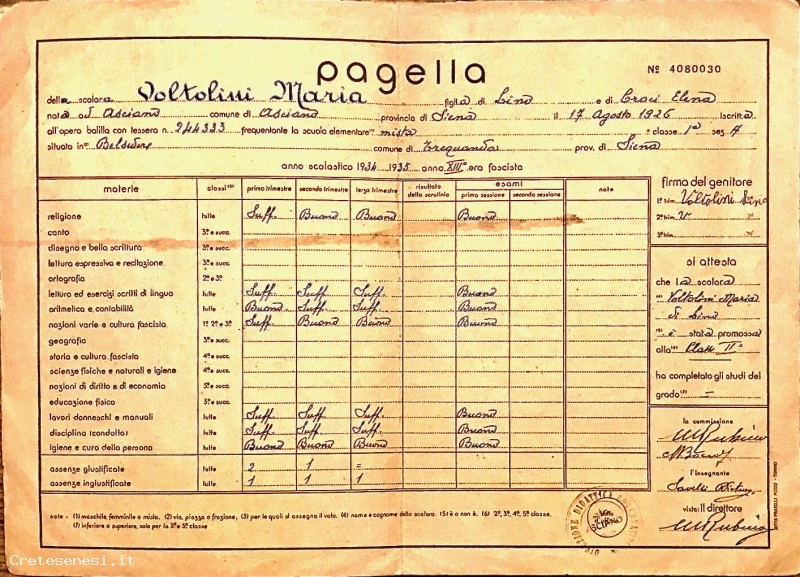 pagella
Nº 4080030
della scolara Voltolini Maria figlia di Lino e di Croci Elena
nata ad Asciano comune di Asciano provincia di Siena il 17 Agosto 1926 iscritta
all'opera balilla con tessera n. 244333 frequentante la scuola elementare (1) mista classe 1ª sez. A
situata in (2) Belsedere comune di Trequanda prov. di Siena
anno scolastico 1934 1935 anno XIIIº era fascista
materie classi (3) primo trimestre secondo trimestre terzo trimestre risultato dello scrutinio esami prima sessione seconda sessione note
religione tutte Suff. Buono Buono Buono
canto 3ª e succ.
disegno e bella scrittura 3ª e succ.
lettura espressiva e recitazione 3ª e succ.
ortografia 2ª e 3ª
lettura ed esercizi scritti di lingua tutte Suff. Suff. Suff. Buono
aritmetica e contabilità tutte Buono Suff. Suff. Buono
nozioni varie e cultura fascista 1ª 2ª e 3ª Suff. Buono Buono Buono
geografia 3ª e succ.
storia e cultura fascista 4ª e succ.
scienze fisiche e naturali e igiene 4ª e succ.
nozioni di diritto e di economia 5ª e succ.
educazione fisica 3ª e succ.
lavori donneschi e manuali tutte Suff. Suff. Suff. Buono
disciplina (condotta) tutte Suff. Suff. Suff. Buono
igiene e cura della persona tutte Buono Buono Buono Buono
assenze giustificate tutte 2 1 =
assenze ingiustificate tutte 1 1 1
firma del genitore
1º trim. Voltolini Lino
2º trim. V
3º trim.
si attesta
che la scolara
(4) Voltolini Maria
di Lino
(5) è stata promossa
alla (6) Classe IIª
ha completato gli studi del
grado (7) =
la commissione
l'insegnante
visto: il direttore
note - (1) maschile, femminile o mista. (2) via, piazza o frazione, (3) per le quali si assegna il voto. (4) nome e cognome dello scolaro. (5) è o non è. (6) 2ª, 3ª, 4ª, 5ª classe.
(7) inferiore o superiore, solo per la 3ª e 5ª classe
Cretesenesi.it